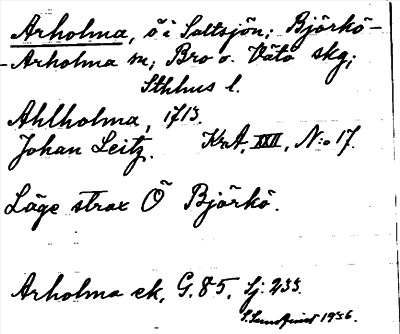 Arholma, ö i Saltsjön; Björkö-
-Arholma sn; Bro o. Vätö skg;
Sthlms l.
Ahlholma, 1713.
Johan Leitz. KrA, XXII, N:o 17.
Läge strax Ö Björkö.
Arholma ek, G. 85, Sj: 233.
S. Lundqvist 1936.